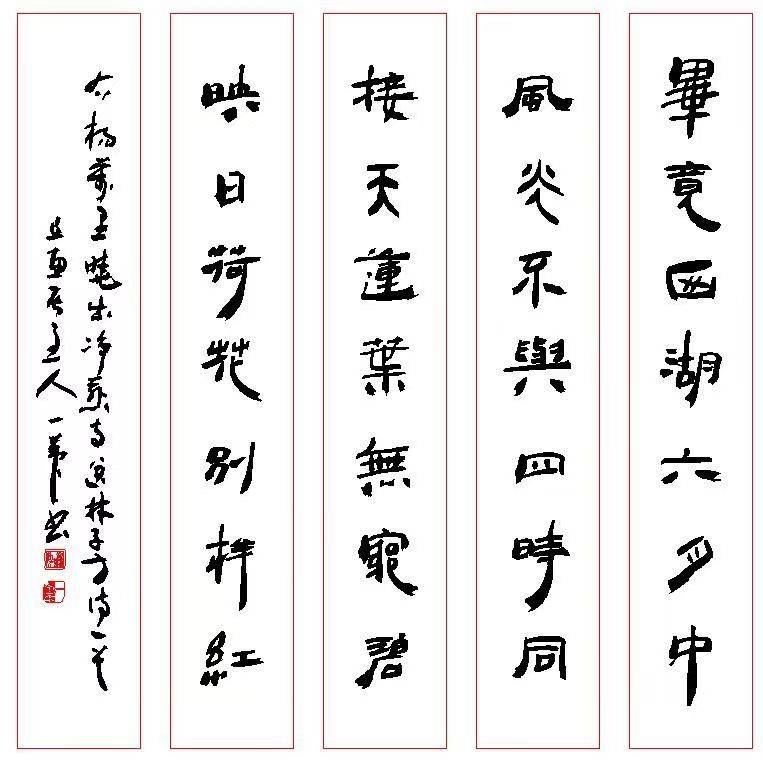 畢竟西湖六月中
風光不與四時同
接天蓮葉無窮碧
映日荷花別样紅
右楊萬里曉出净慈寺送林子方詩一首
居主人一書